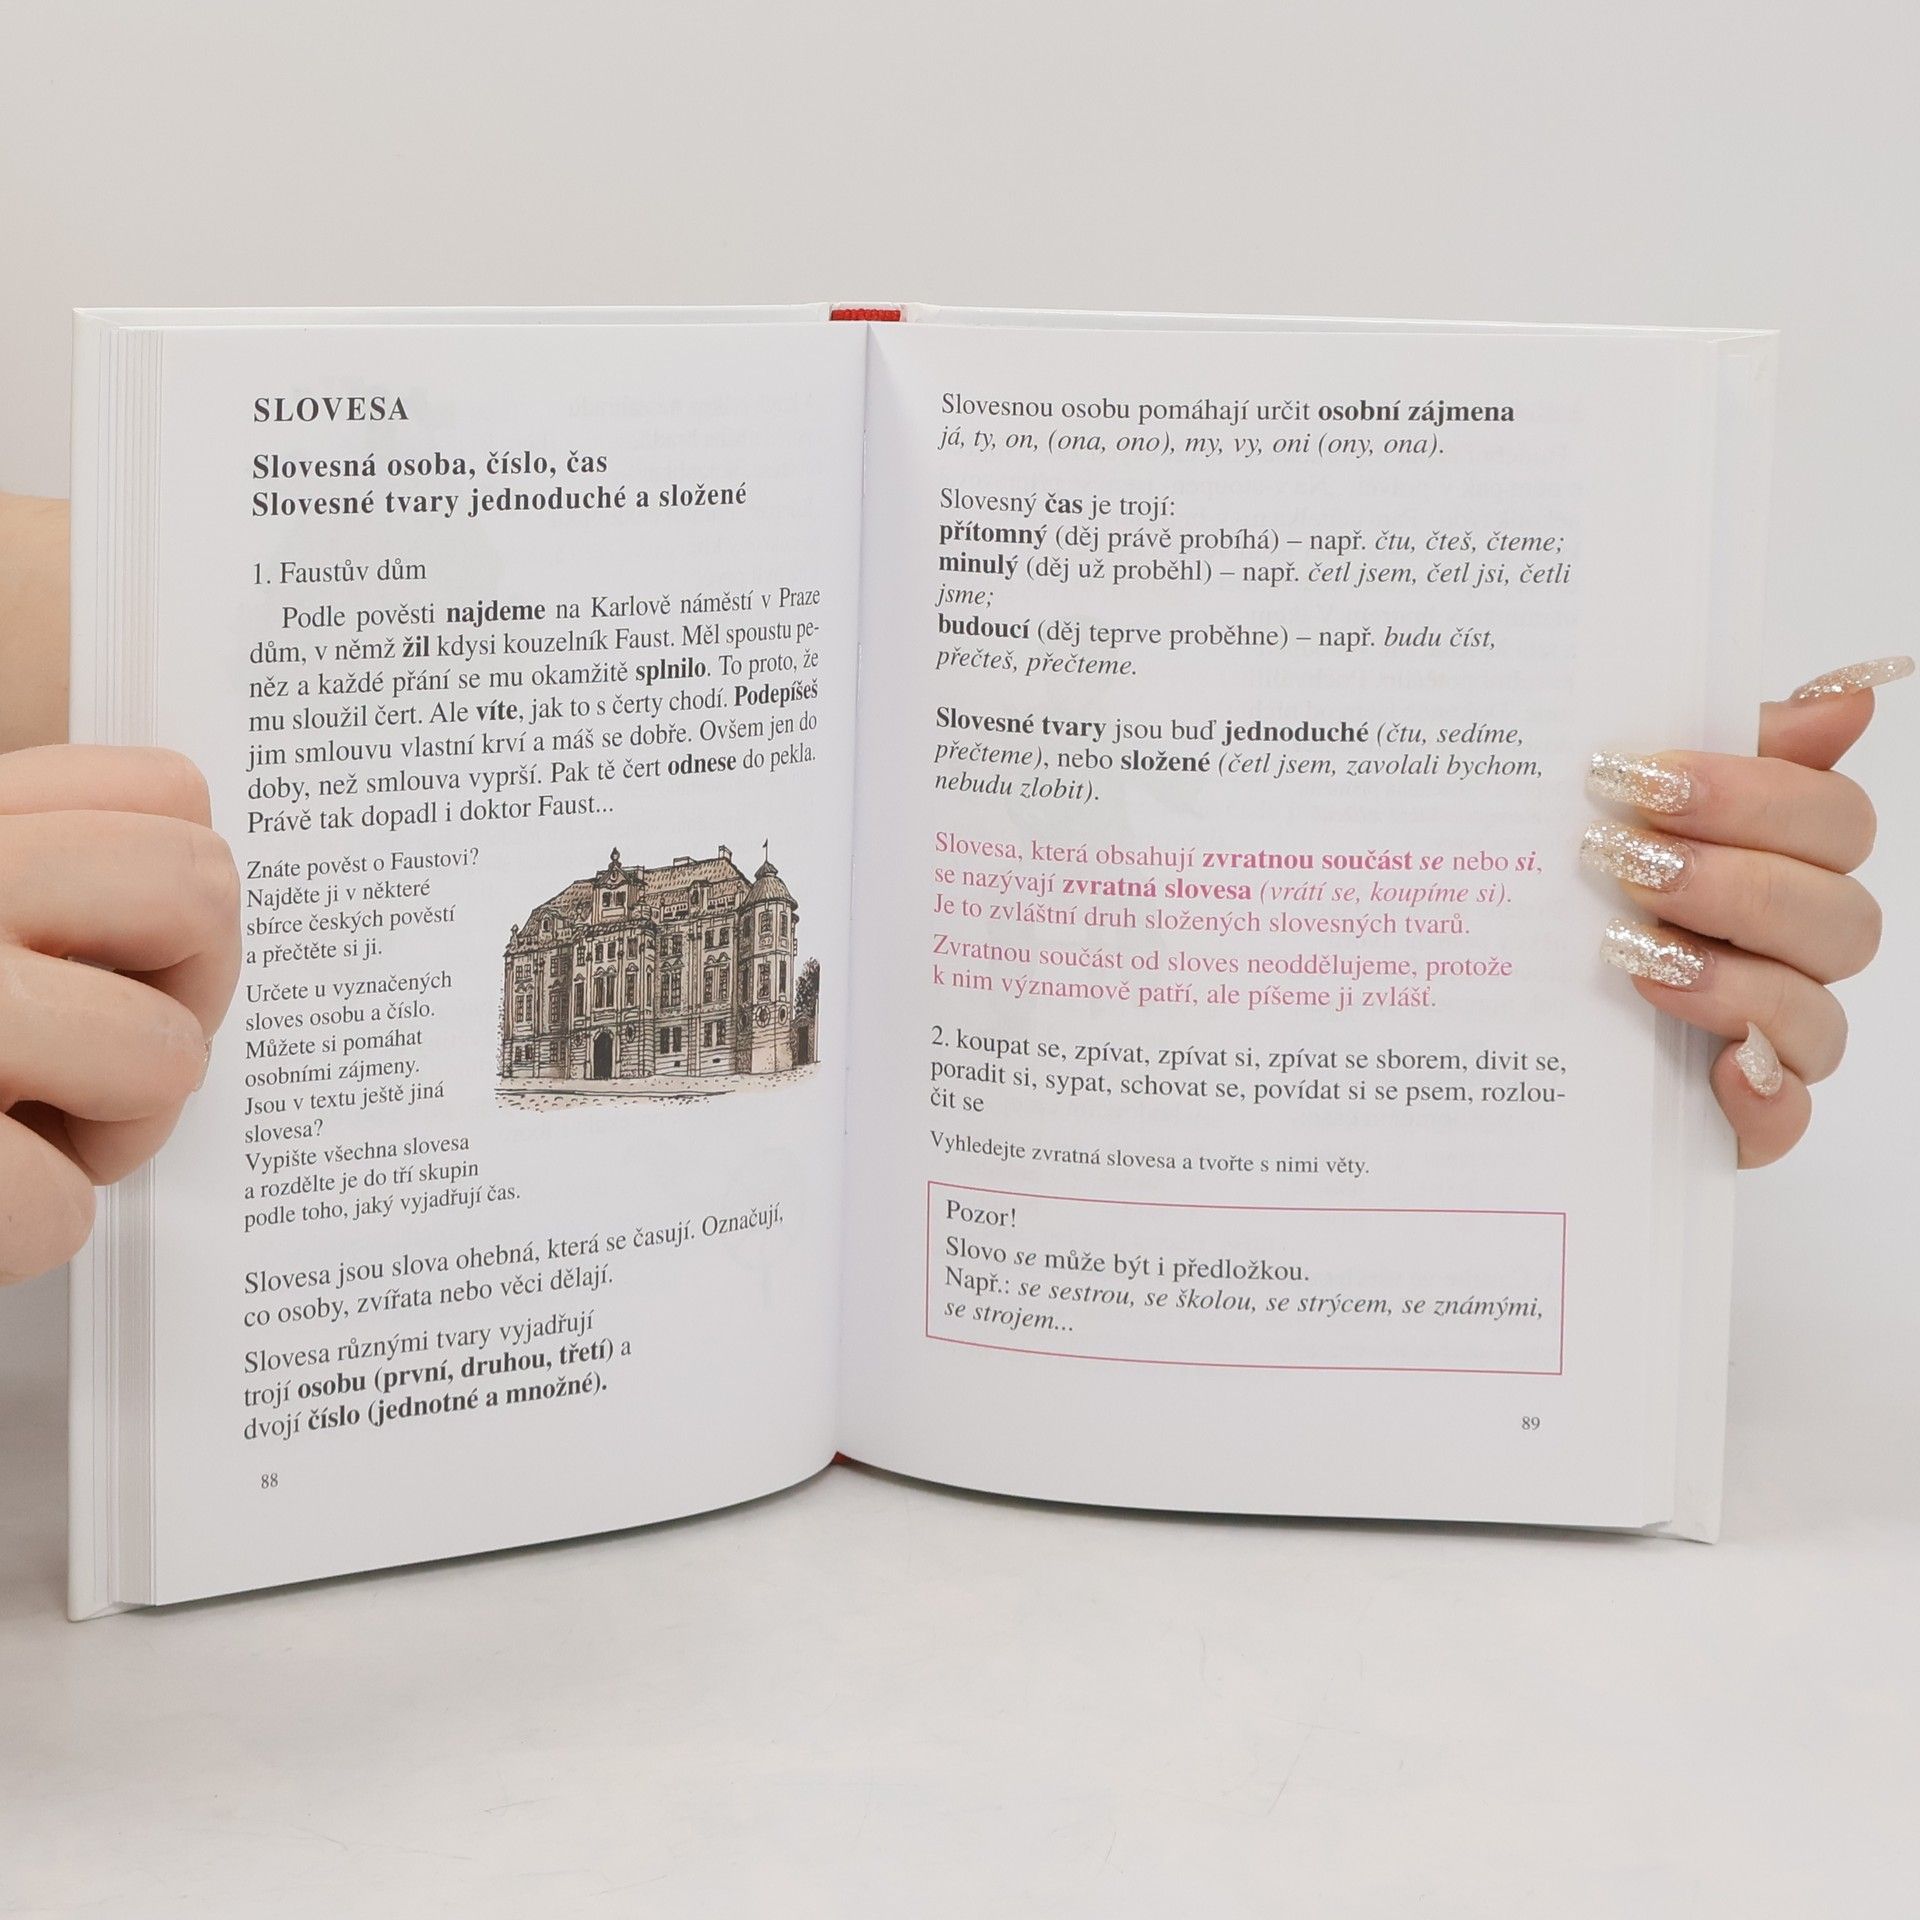 SLOVESA
Slovesná osoba, číslo, čas
Slovesné tvary jednoduché a složené
1. Faustův dům
Podle pověsti najdeme na Karlově náměstí v Praze
dům, v němž žil kdysi kouzelník Faust. Měl spoustu pe-
něz a každé přání se mu okamžitě splnilo. To proto, že
mu sloužil čert. Ale víte, jak to s čerty chodí. Podepíšeš
jim smlouvu vlastní krví a máš se dobře. Ovšem jen do
doby, než smlouva vyprší. Pak tě čert odnese do pekla.
Právě tak dopadl i doktor Faust...
Znáte pověst o Faustovi?
Najděte ji v některé
sbírce českých pověstí
a přečtěte si ji.
Určete u vyznačených
sloves osobu a číslo.
Můžete si pomáhat
osobními zájmeny.
Jsou v textu ještě jiná
slovesa?
Vypište všechna slovesa
a rozdělte je do tří skupin
podle toho, jaký vyjadřují čas.
Slovesa jsou slova ohebná, která se časují. Označují,
co osoby, zvířata nebo věci dělají.
Slovesa různými tvary vyjadřují
trojí osobu (první, druhou, třetí) a
dvojí číslo (jednotné a množné).
88
Slovesnou osobu pomáhají určit osobní zájmena
já, ty, on, (ona, ono), my, vy, oni (ony, ona).
Slovesný čas je trojí:
přítomný (děj právě probíhá) – např. čtu, čteš, čteme;
minulý (děj už proběhl) – např. četl jsem, četl jsi, četli
jsme;
budoucí (děj teprve proběhne) – např. budu číst,
přečteš, přečteme.
Slovesné tvary jsou buď jednoduché (čtu, sedíme,
přečteme), nebo složené (četl jsem, zavolali bychom,
nebudu zlobit).
Slovesa, která obsahují zvratnou součást se nebo si,
se nazývají zvratná slovesa (vrátí se, koupíme si).
Je to zvláštní druh složených slovesných tvarů.
Zvratnou součást od sloves neoddělujeme, protože
k nim významově patří, ale píšeme ji zvlášť.
2. koupat se, zpívat, zpívat si, zpívat se sborem, divit se,
poradit si, sypat, schovat se, povídat si se psem, rozlou-
čit se
Vyhledejte zvratná slovesa a tvořte s nimi věty.
Pozor!
Slovo se může být i předložkou.
Např.: se sestrou, se školou, se strýcem, se známými,
se strojem...
89